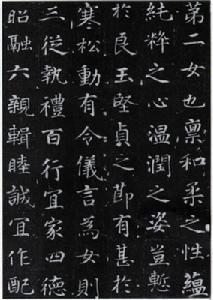 第二女也禀和柔之性蘊
純粹之心溫潤之姿豈慙
於良玉堅貞之節有甚於
寒松動有令儀言為女則
三從執禮百行宜家四德
昭融六親輯睦誠宜作配